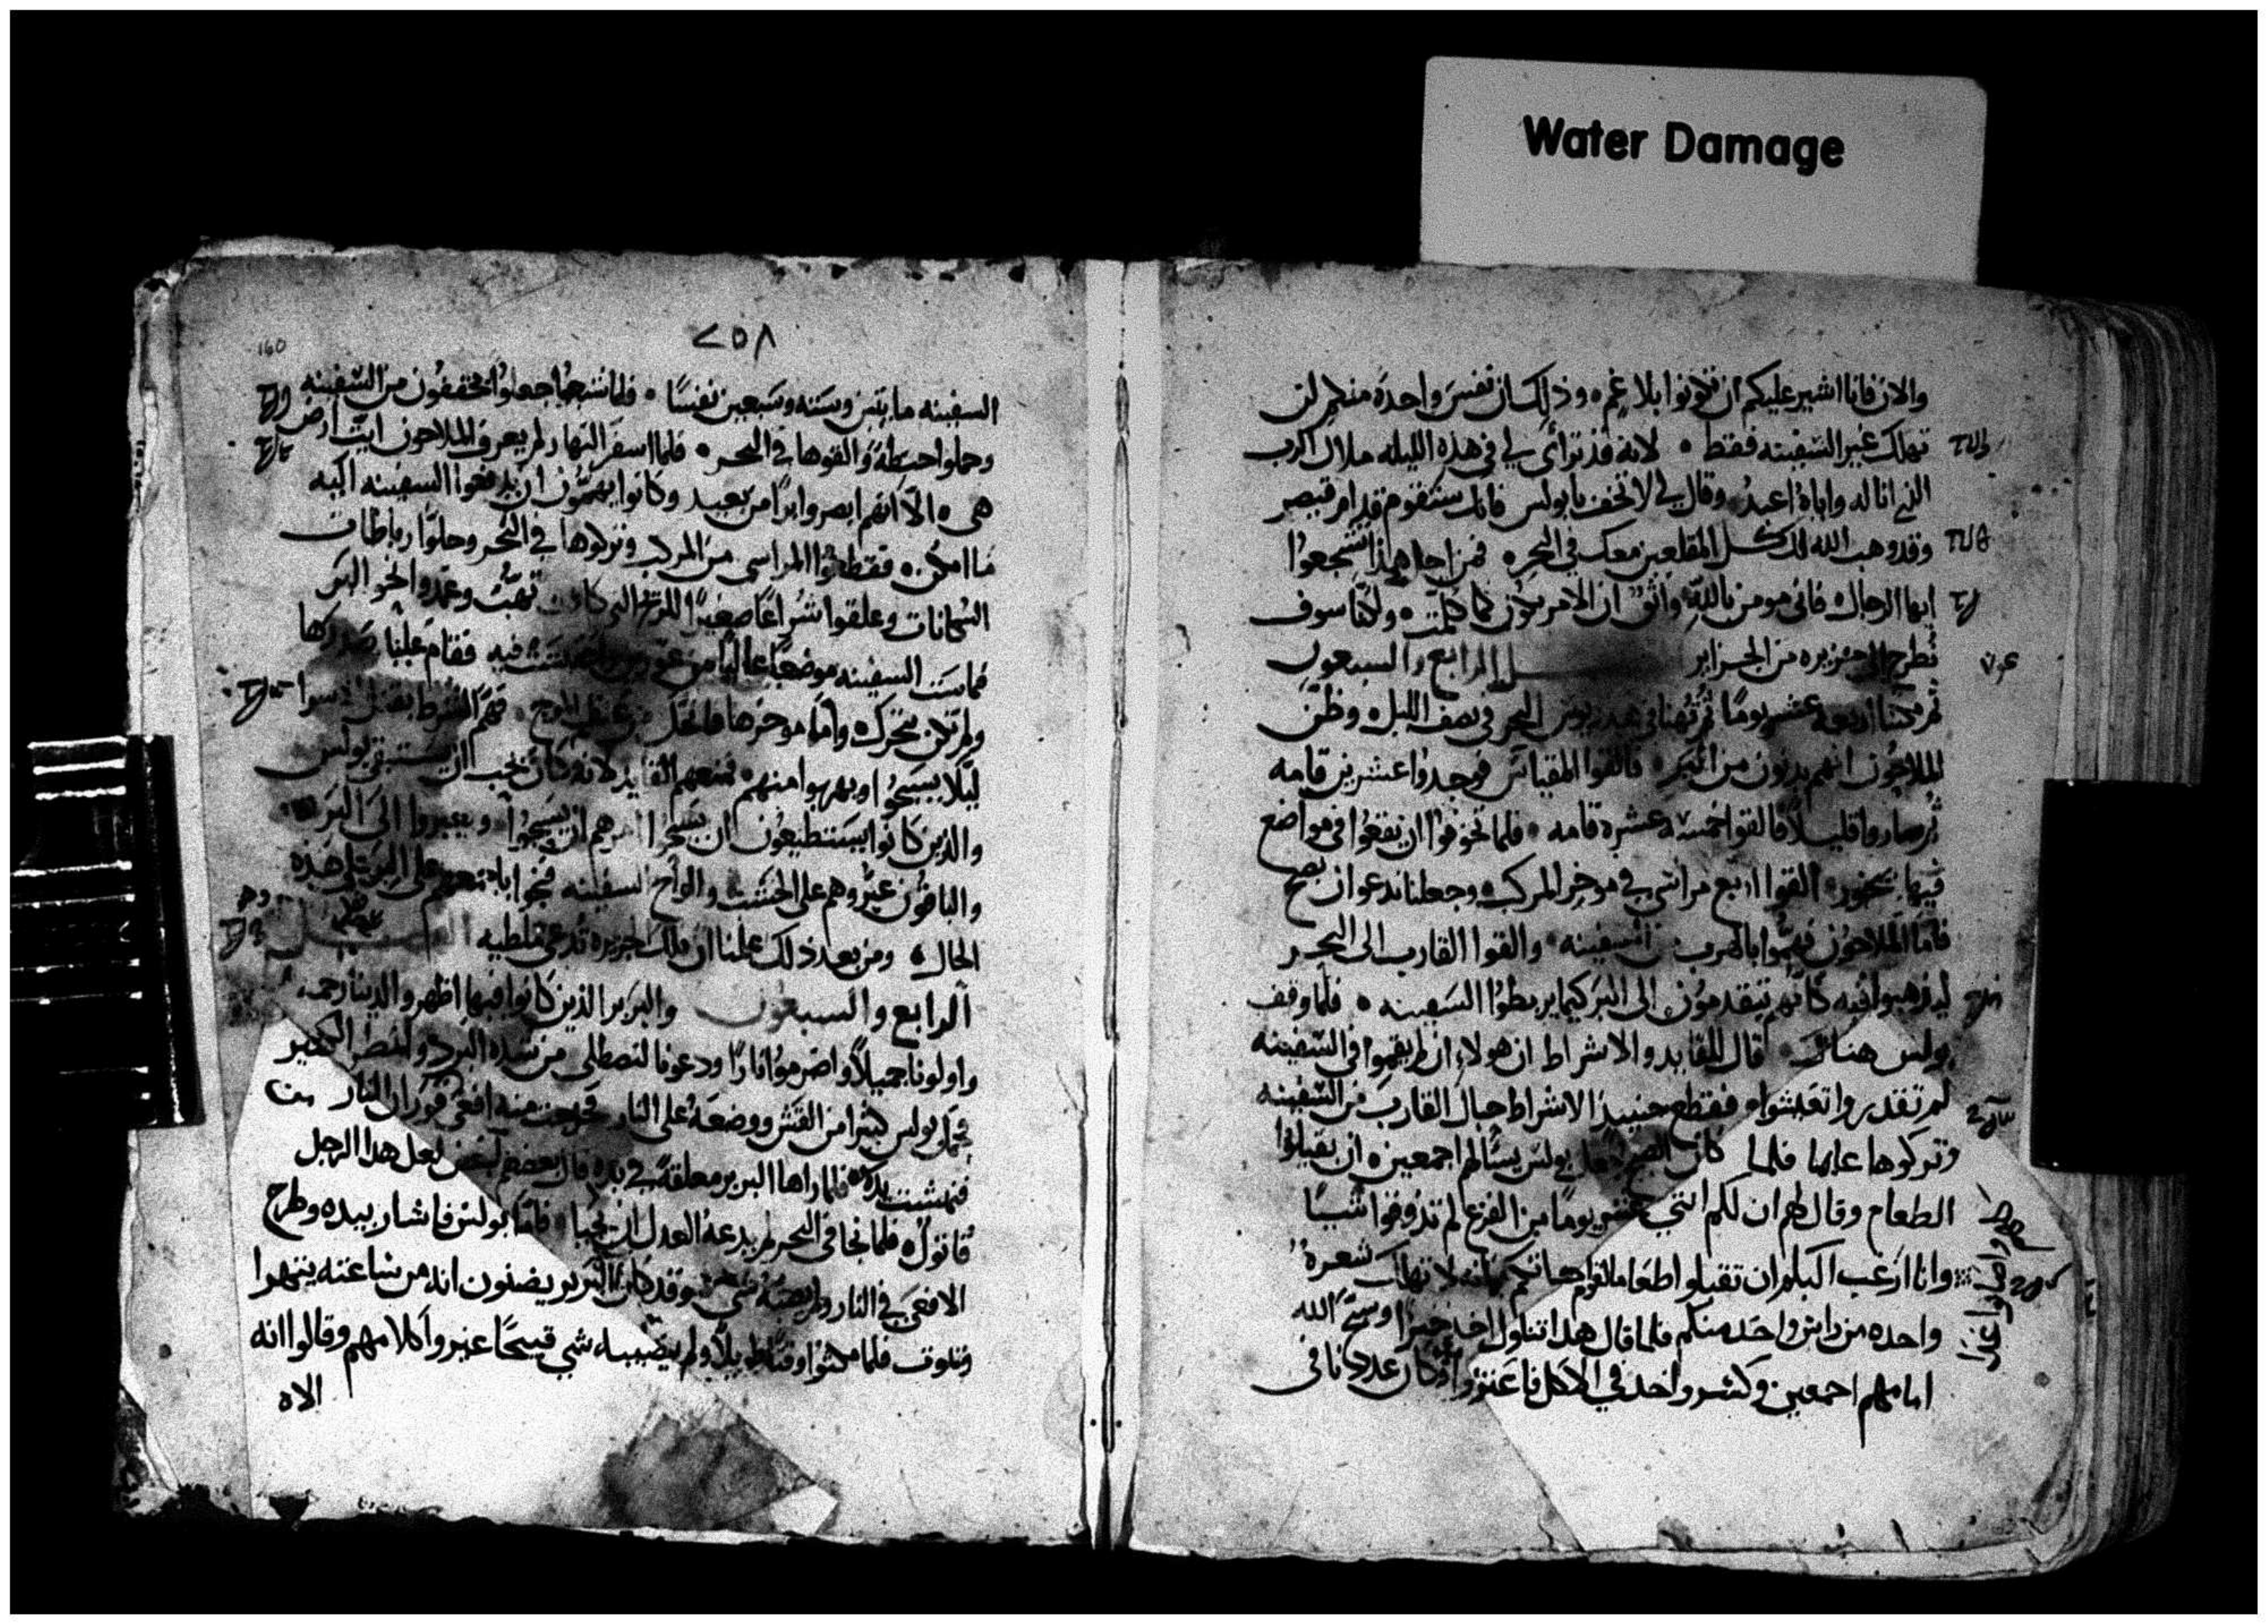 Water Damage
والان فانا اشير عليكم ان تكونوا بلا غم وذلك ان نفس واحدة منكم لن
تهلك غير السفينه فقط لانه قد ترأى لي في هذه الليله ملاك الرب
الذي انا له واياه اعبد وقال لي لا تخف يا بولس فانك ستقوم قدام قيصر
وقد وهب الله لك كل المقلعين معك في البحر فمن اجل هذا تشجعوا
ايها الرجال فاني مومن بالله واثق ان الامر يكون كما كلمت ولكنا سوف
نطرح الى جزيره من الجزاير الرابع والسبعون
اربعة عشر يوما ثم تهنا في البحر في نصف الليل وظن
الملاحون انهم يدنون من البر فالقوا المقياس فوجدوا عشرين قامه
ثم صاروا قليلا فالقوا خمسة عشره قامه فلما تخوفوا ان نقع في مواضع
فيها صخور القوا اربع مراسي في موخر المركب وجعلنا ندعوا ان نصح
فاما الملاحون فهموا بالهرب من السفينه والقوا القارب الى البحر
ليذهبوا فيه كانهم يتقدمون الى البر كيما يربطوا السفينه فلما وقف
بولس هناك قال للقايد والاشراط ان هولاء ان لم يقيموا في السفينه
لم تقدروا تعيشوا فقطع حينيذ الاشراط حبال القارب من السفينه
وتركوها فلما كان بولس يسألهم اجمعين ان يقبلوا
الطعام وقال لهم ان لكم عشر يوما من الفزع لم تذوقوا شيا
وانا ارغب اليكم ان تقبلوا طعاما لقوام حياتكم لانه لا تهلك شعرة
واحده من راس واحد منكم فلما قال هذا تناول خبزا وسبح الله
امامهم اجمعين وكسر واخذ في الاكل وكان عددنا في
٢٥٨
160
السفينه مايتين وسته وسبعين نفسا فلما شبعوا جعلوا يخففون من السفينه
وحملوا حنطة والقوها في البحر فلما اسفر النهار لم يعرف الملاحون ايت ارض
هي الا انهم ابصروا برا من بعيد وكانوا يهمون ان يدفعوا السفينه اليه
ما امكن فقطعوا المراسي من المركب وتركوها في البحر وحلوا رباطات
السكانات وعلقوا شراعا صغيرا للريح التي كانت تهب وعمدوا نحو البر
فماست السفينه موضعا عاليا فيه فقام عليها صدرها
ولم تكن تتحرك واما موخرها فانحل من عنف الموج فهم الشرط بقتل
ليلا يسبحوا ويهربوا منهم فمنعهم القايد لانه كان يحب ان يستبقي بولس
والذين كانوا يستطيعون ان يسبحوا امرهم ان يسبحوا ويعبروا الى البر
والباقون عبروهم على الخشب والواح السفينه على البر على هذه
الحال ومن بعد ذلك علمنا ان تلك الجزيره تدعى ملطيه
الرابع والسبعون والبربر الذين كانوا فيها اظهروا لدينا رحمه
واولونا جميلا واضرموا نارا ودعونا لنصطلى من شده البرد والمطر الكثير
فحمل بولس كثيرا من القش ووضعه على النار فخرجت منه افعى من
فنهشت يده فلما راها البربر معلقة في يده قال بعضهم لبعض لعل هذا الرجل
قاتول فلما نجا في البحر لم يدعه العدل ان يحيا فاما بولس فاشار بيده وطرح
الافعى في النار ولم يصبه شي وقد كان البربر يضنون انه من ساعته ينهرا
ويموت فلما مكثوا وقتا طويلا ولم يصيبه شي قبيحا غيروا كلامهم وقالوا انه
الاه